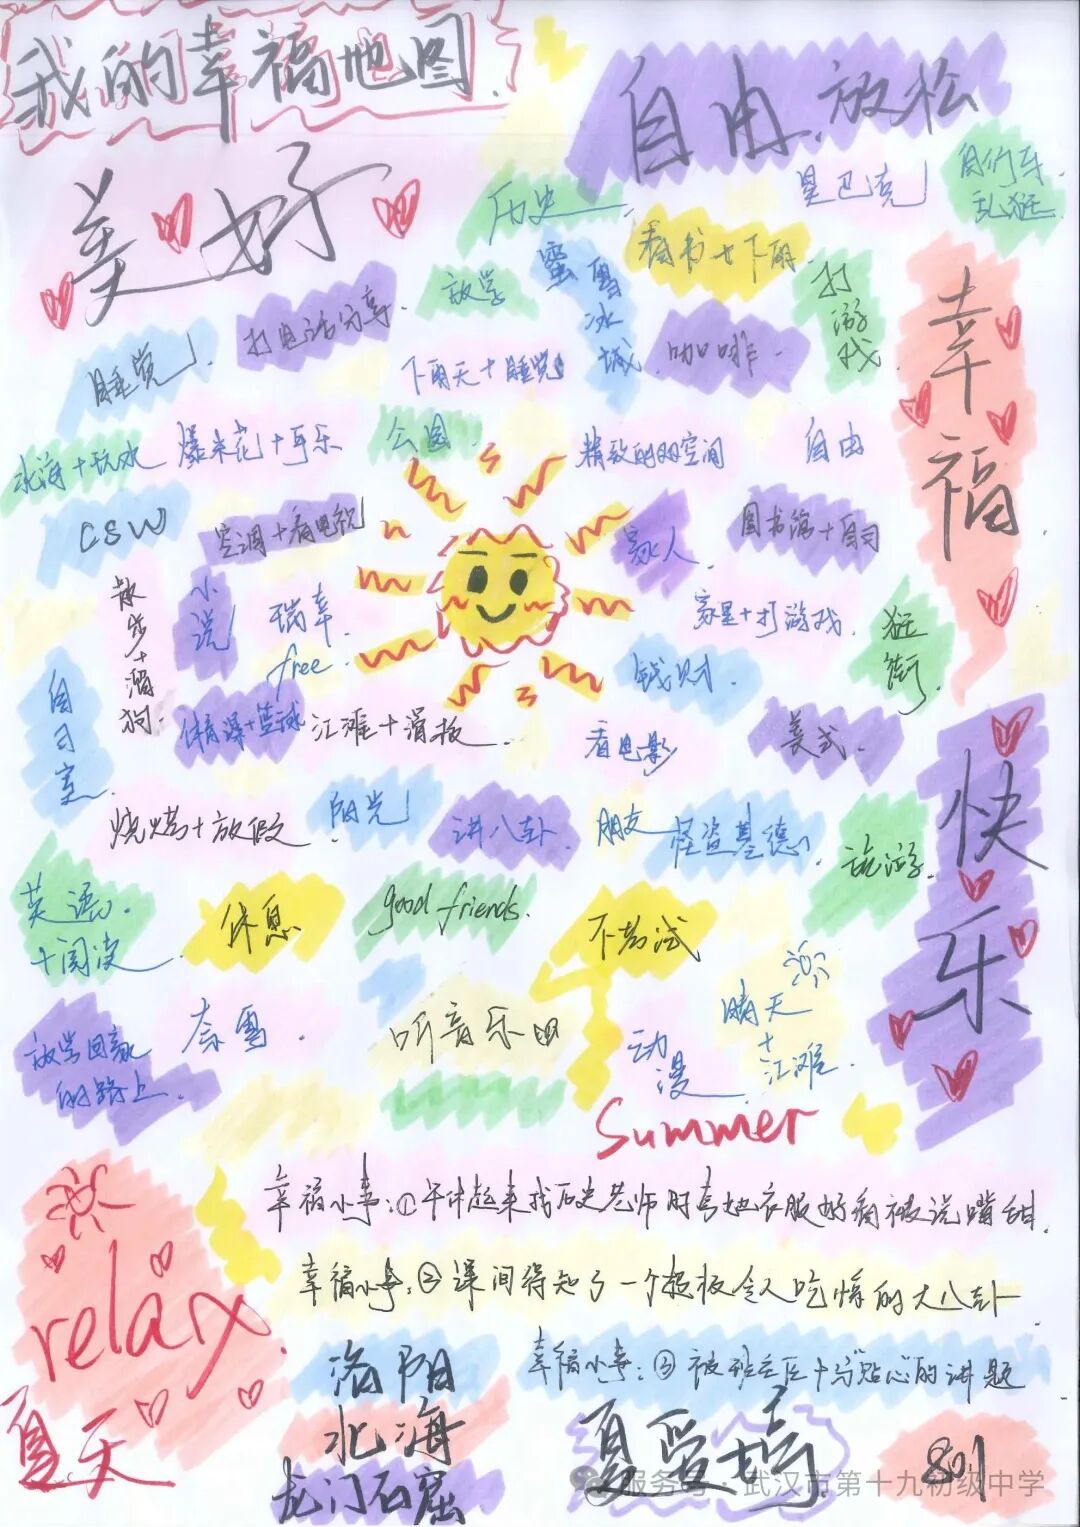 我的幸福地图.
自由.放松
美好
历史
星巴克
自行车
乱逛
看书+下雨
蜜雪冰城
打游戏
放学
打电话分享.
睡觉.
下雨天+睡觉
咖啡.
幸福
北海+玩水
爆米花+可乐
公园
精致的网空间
自由
CSW
空调+看电视
家人
图书馆+自习
散步+溜狗.
小说
瑞幸.
free.
家里+打游戏.
逛街.
钱财.
自习室.
体育课+篮球
江滩+滑板.
看电影
美式.
快乐
烧烤+放假
阳光
讲八卦.
朋友
怪盗基德.
旅游.
英语.
+阅读.
休息
good friends.
不考试
放学回家
的路上.
奈雪.
听音乐
动漫
晴天
+
江滩.
Summer
幸福小事:①午休起来找历史老师时夸她衣服好看被说嘴甜.
幸福小事:②课间得知了一个超级令人吃惊的大八卦
relax.
幸福小事:③被班主任十分"贴心"的讲题
洛阳
夏天
北海
龙门石窟
801
服务号·武汉市第十九初级中学